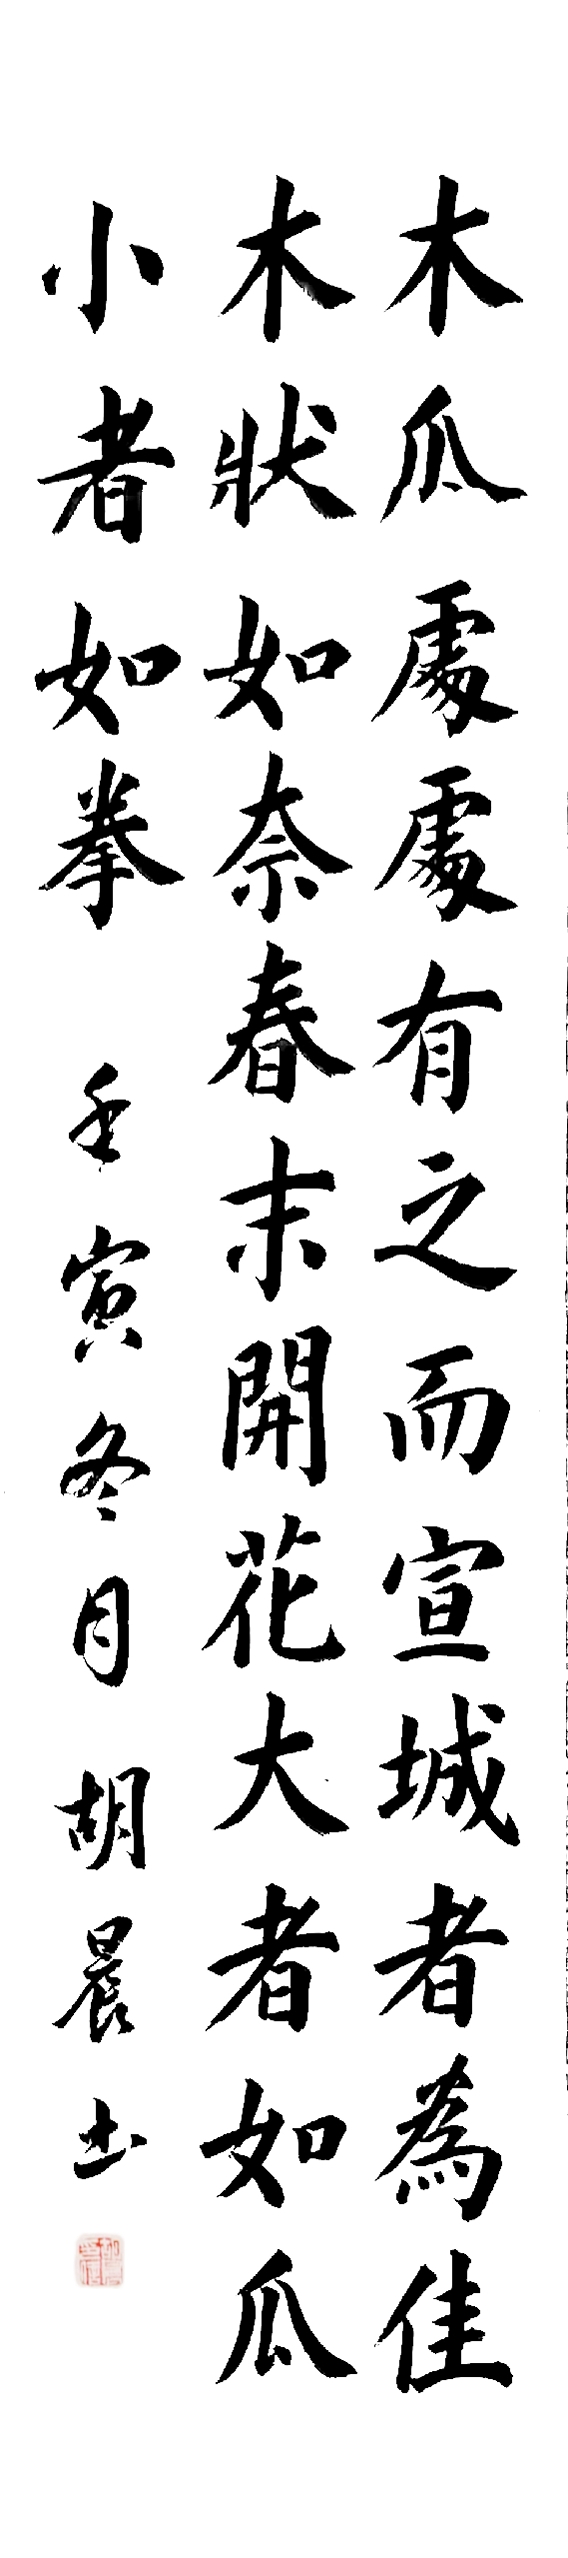 木瓜處處有之而宣城者為佳
木狀如奈春末開花大者如瓜
小者如拳 壬寅冬月 胡晨书